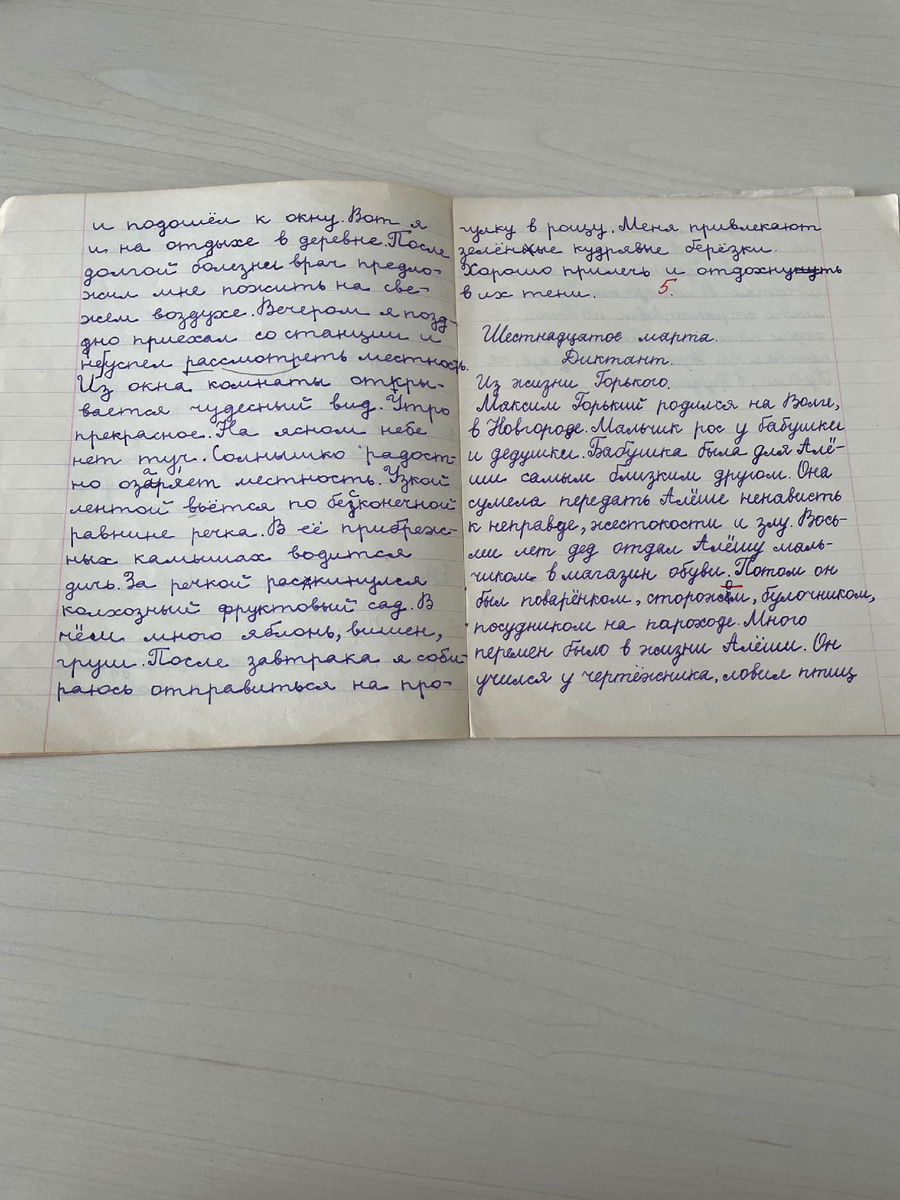 и подошёл к окну. Вот я
и на отдыхе в деревне. После
долгой болезни врач предло-
жил мне пожить на све-
жем воздухе. Вечером я позд-
дно приехал со станции и
не успел рассмотреть местность.
Из окна комнаты откры-
вается чудесный вид. Утро
прекрасное. На ясном небе
нет туч. Солнышко радост-
но озаряет местность. Узкой
лентой вьётся по бесконечной
равнине речка. В её прибреж-
ных камышах водится
дичь. За речкой раскинулся
колхозный фруктовый сад. В
нём много яблонь, вишен,
груш. После завтрака я соби-
раюсь отправиться на про-
гулку в рощу. Меня привлекают
зелёные кудрявые берёзки.
Хорошо прилечь и отдохнуть
в их тени. 5.
Шестнадцатое марта.
Диктант.
Из жизни Горького.
Максим Горький родился на Волге,
в Новгороде. Мальчик рос у бабушки
и дедушки. Бабушка была для Алё-
ши самым близким другом. Она
сумела передать Алёше ненависть
к неправде, жестокости и злу. Вось-
ми лет дед отдал Алёшу маль-
чиком в магазин обуви. Потом он
был поварёнком, сторожом, булочником,
посудником на пароходе. Много
перемен было в жизни Алёши. Он
учился у чертёжника, ловил птиц